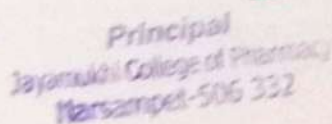 Principal
Jayamukhi College of Pharmacy
Narsampet-506 332